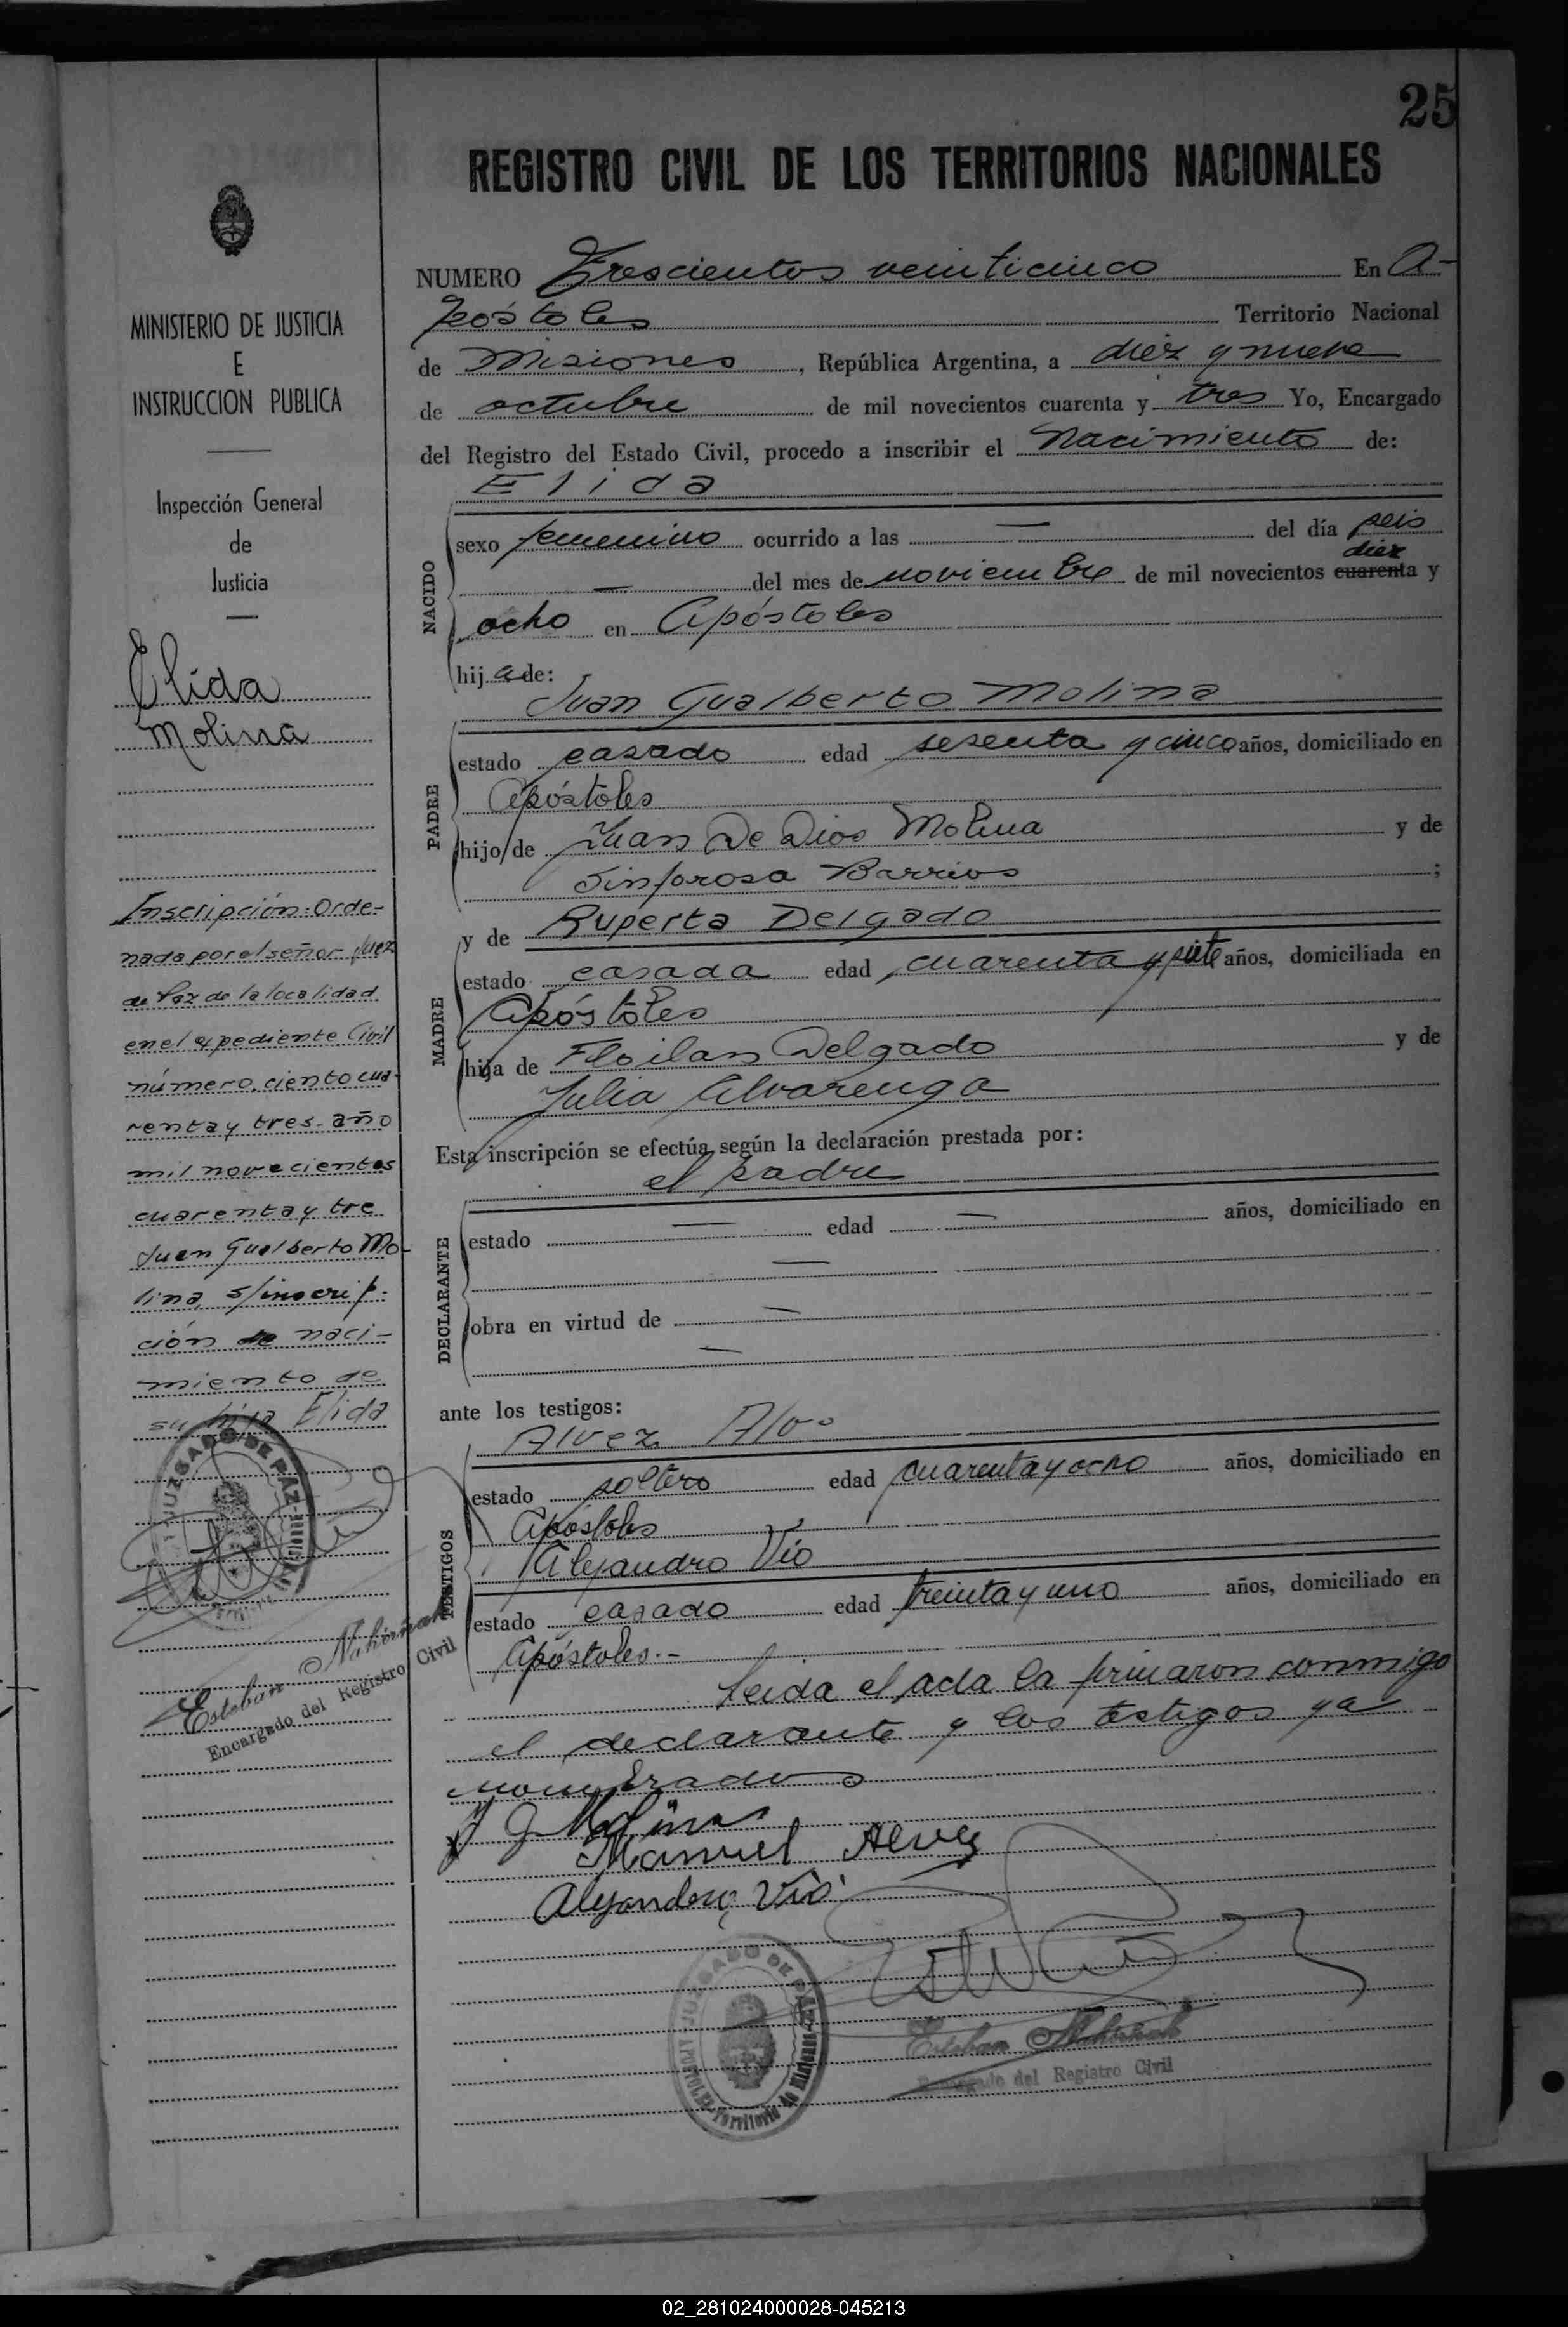 25
REGISTRO CIVIL DE LOS TERRITORIOS NACIONALES
MINISTERIO DE JUSTICIA
E
INSTRUCCION PUBLICA
Inspección General
de
Justicia
Elida
Molina
Inscripción: Orde-
nada por el señor Juez
de Paz de la localidad
en el expediente Civil
número ciento cua-
renta y tres año
mil novecientos
cuarenta y tre
Juan Gualberto Mo-
lina, s/inscrip-
ción de naci-
miento de
su hija Elida
JUZGADO DE PAZ
Esteban Nahirñak
Encargado del Registro Civil
NUMERO Trescientos veinticinco En A-
póstoles Territorio Nacional
de Misiones, República Argentina, a diez y nueve
de octubre de mil novecientos cuarenta y tres Yo, Encargado
del Registro del Estado Civil, procedo a inscribir el Nacimiento de:
Elida
NACIDO
sexo femenino ocurrido a las — del día seis
diez
— del mes de noviembre de mil novecientos cuarenta y
ocho en Apóstoles
hija de:
Juan Gualberto Molina
PADRE
estado casado edad sesenta y cinco años, domiciliado en
Apóstoles
hijo de Juan De Dios Molina y de
Sinforosa Barrios ;
y de Ruperta Delgado
MADRE
estado casada edad cuarenta y siete años, domiciliada en
Apóstoles
hija de Floilan Delgado y de
Julia Alvarenga
Esta inscripción se efectúa según la declaración prestada por:
el padre
DECLARANTE
estado — edad — años, domiciliado en
—
obra en virtud de —
—
ante los testigos:
Alvez
TESTIGOS
estado soltero edad cuarenta y ocho años, domiciliado en
Apóstoles
Alejandro Vio
estado casado edad treinta y uno años, domiciliado en
Apóstoles.-
Leida el acta la firmaron conmigo
el declarante y los testigos ya
nombrados
J G Molina
Manuel Alvez
Alejandro Vio
JUZGADO DE PAZ
APOSTOLES Territorio de Misiones
Esteban Nahirñak
Encargado del Registro Civil
02_281024000028-045213